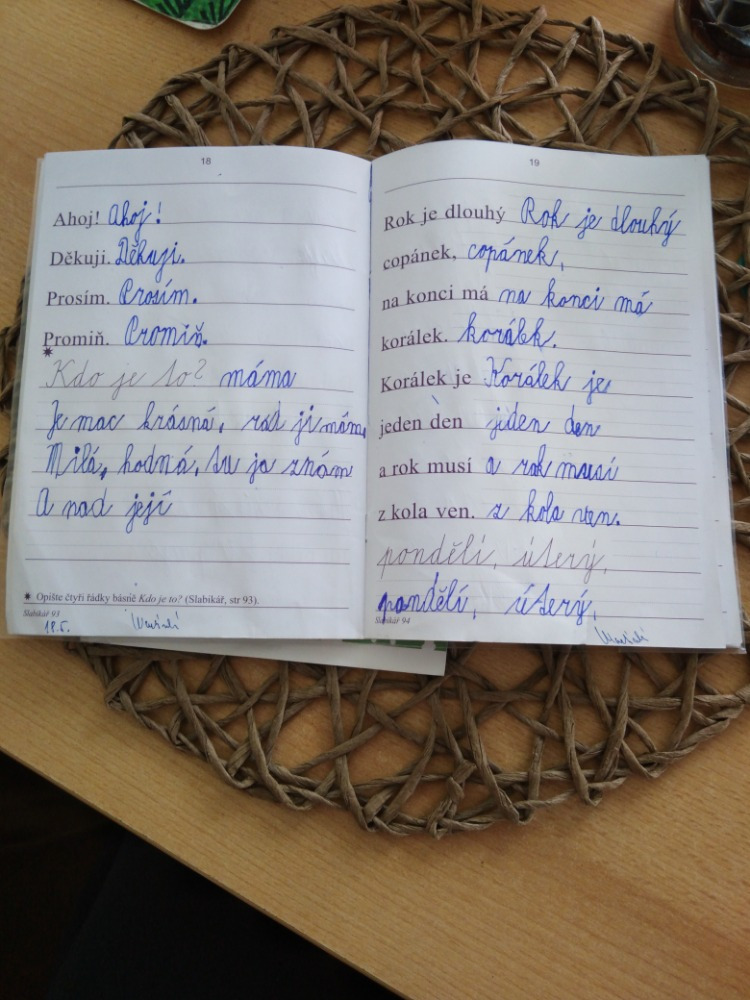 18
Ahoj! Ahoj!
Děkuji. Děkuji.
Prosím. Prosím.
Promiň. Promiň.
Kdo je to? máma
Je moc krásná, rád ji mám.
Milá, hodná, tu já znám
A nad její
✷ Opište čtyři řádky básně Kdo je to? (Slabikář, str 93).
Slabikář 93
18.5.
19
Rok je dlouhý Rok je dlouhý
copánek, copánek,
na konci má na konci má
korálek. korálek.
Korálek je Korálek je
jeden den jiden den
a rok musí a rok musí
z kola ven. z kola ven.
pondělí, úterý,
pondělí, úterý,
Slabikář 94